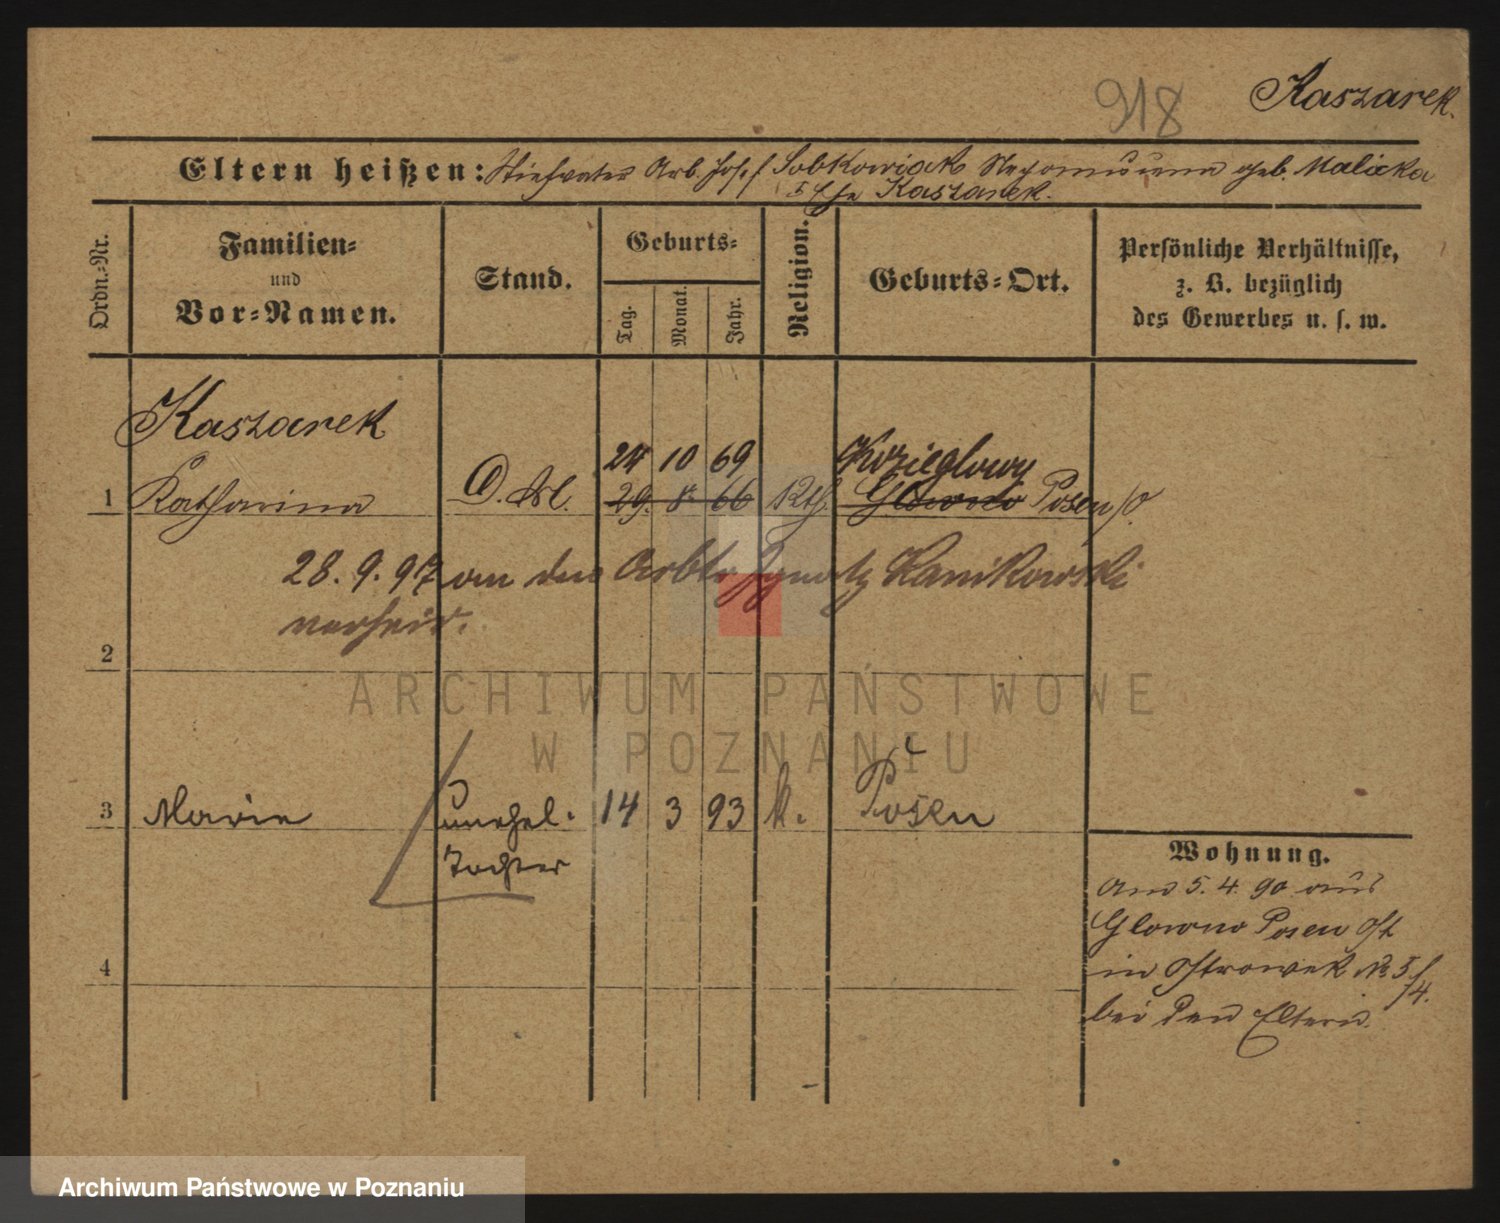 918
Kaszarek.
Eltern heißen: Stiefvater Arb. Josef Sobkowiak Nepomucena geb. Malicka
I Ehe Kaszarek.
Ordn.-Nr.
Familien-
und
Vor-Namen.
Stand.
Geburts-
Tag.
Monat.
Jahr.
Religion.
Geburts-Ort.
Persönliche Verhältnisse,
z. B. bezüglich
des Gewerbes u. s. w.
Kaszarek
24 10 69 Kozieglowy
1 Katharina D. Md. 29. 8. 66 Kth. Glowno Posen /O.
28. 9. 97 an den Arbtr Ignatz Kanikowski
verheir.
2
3 Marie unehel. 14 3 93 k. Posen
Tochter
4
Wohnung.
Am 5. 4. 90 aus
Glowno Posen Ost
in Ostrowek No 5/
/4.
bei den Eltern.
ARCHIWUM PAŃSTWOWE
W POZNANIU
Archiwum Państwowe w Poznaniu